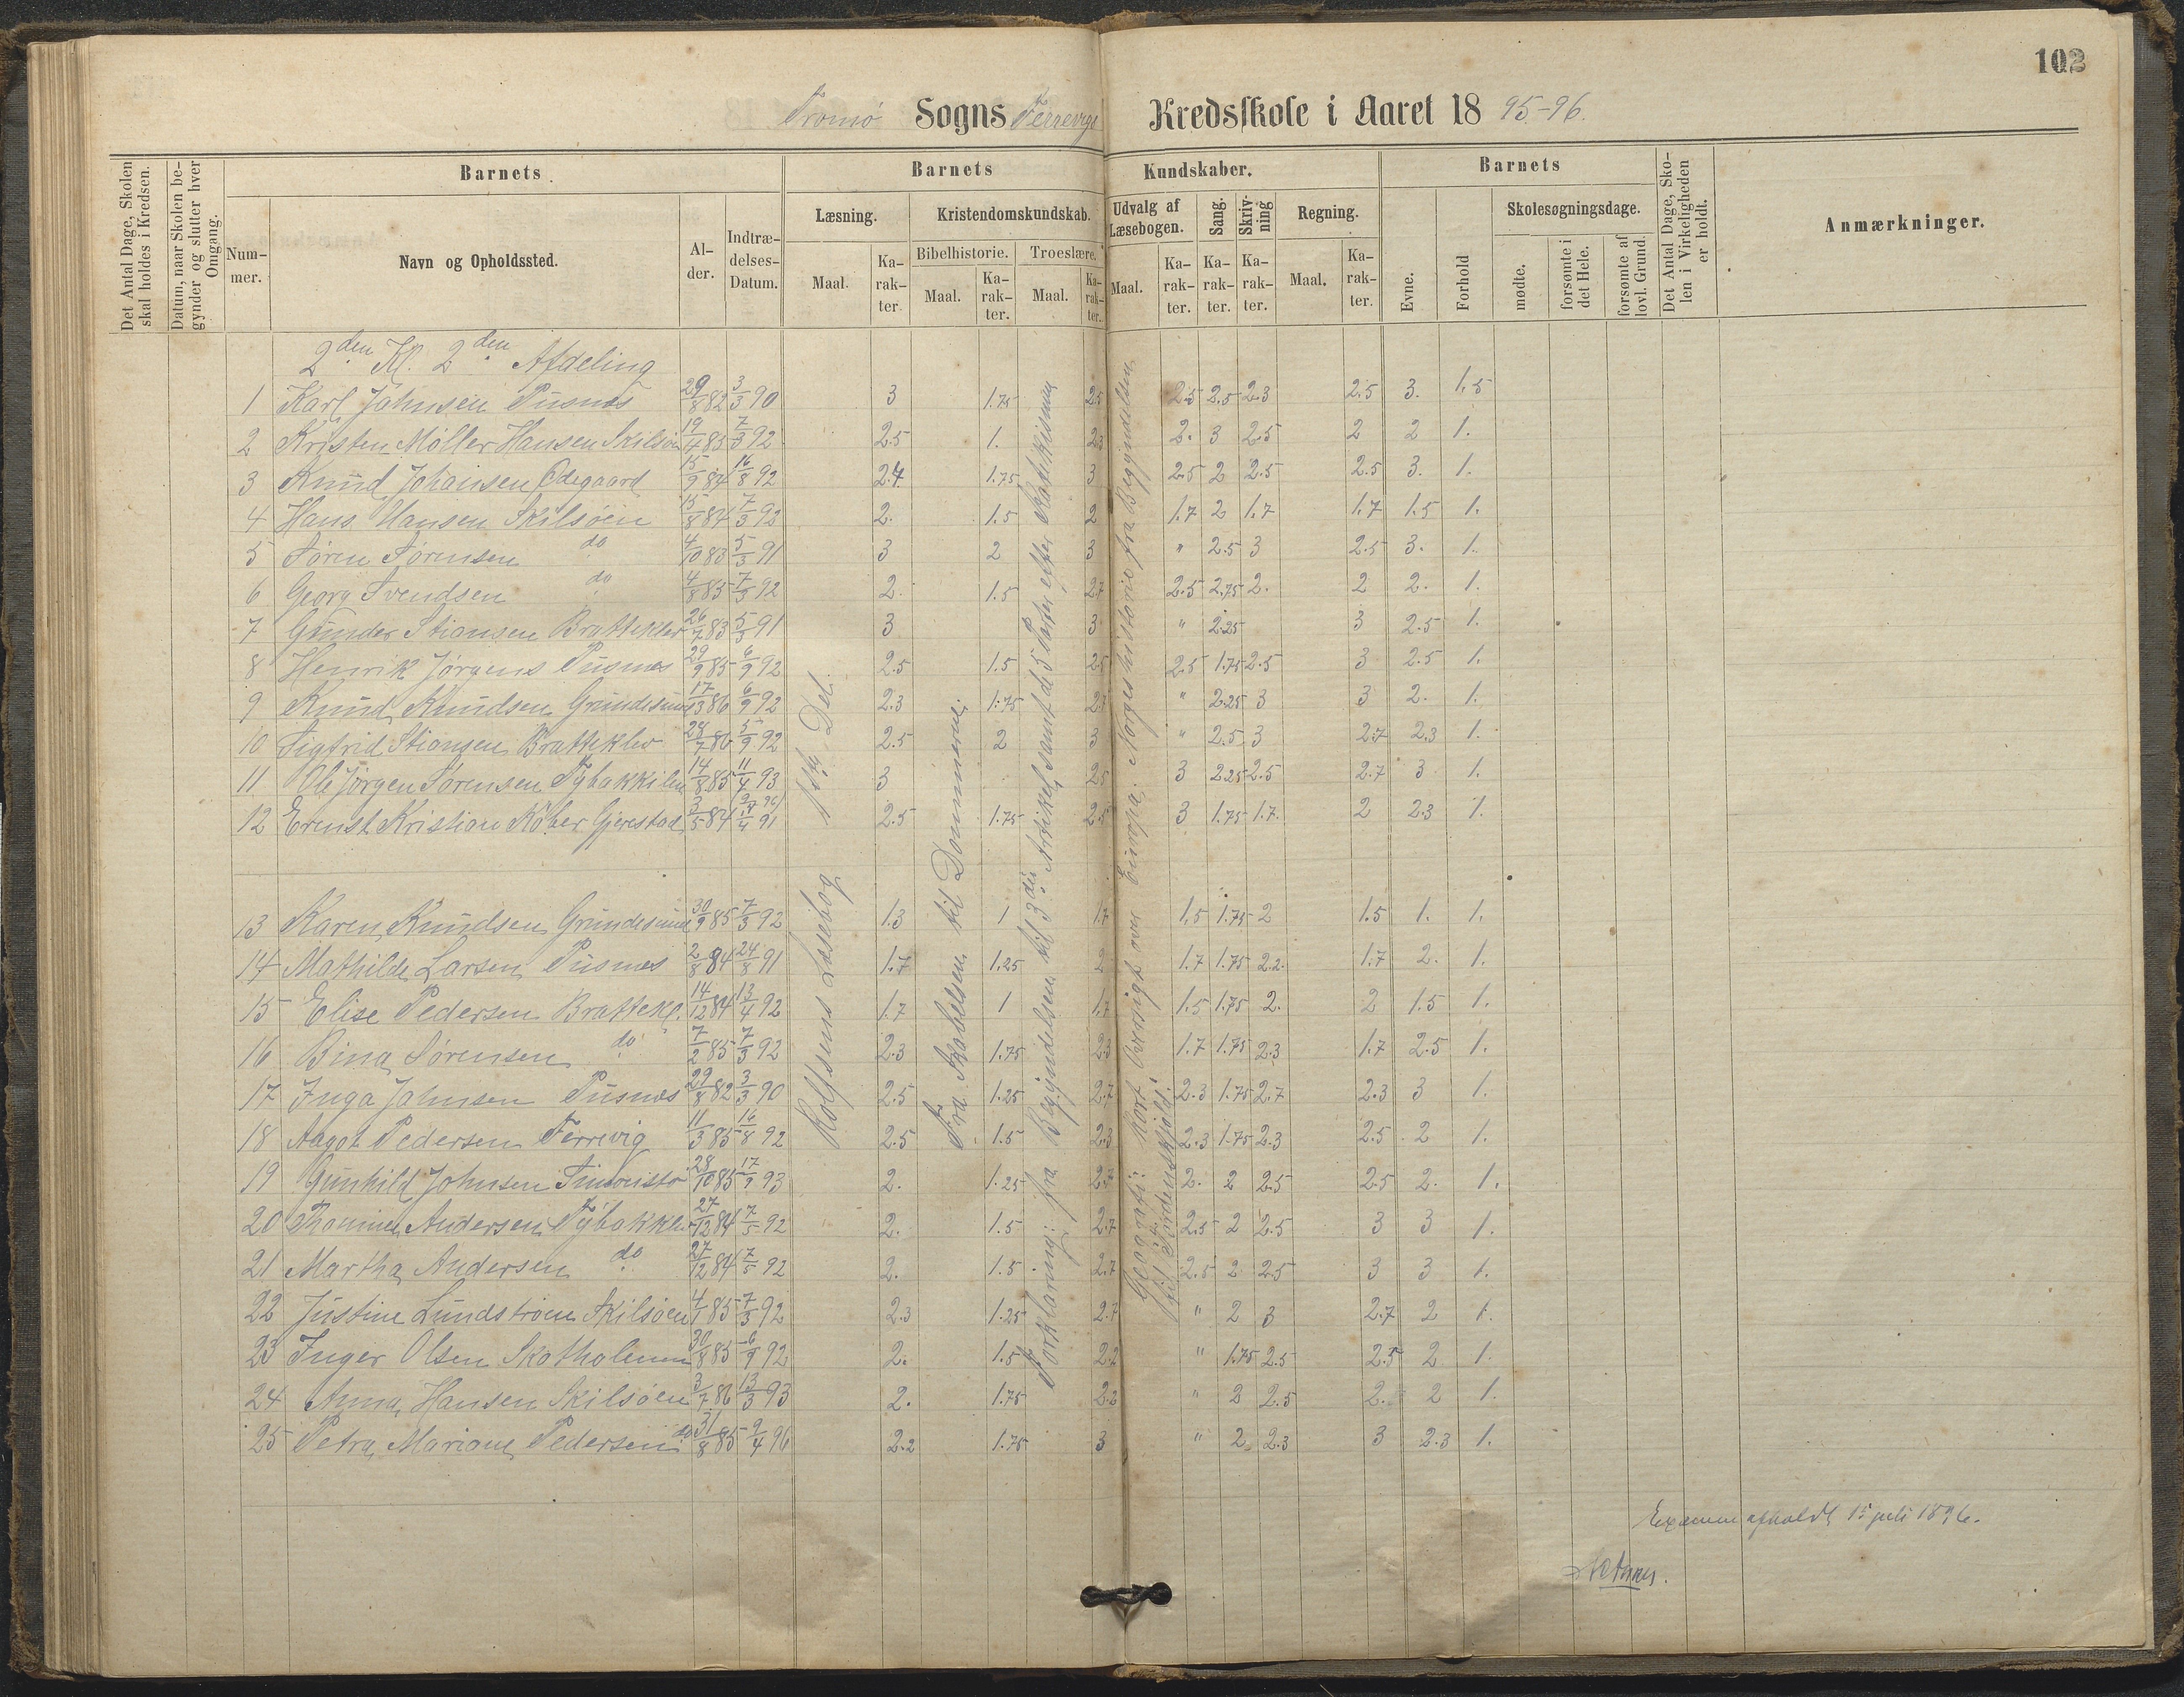 102
Tromø Sogns Færrevigs Kredsskole i Aaret 18 95-96.
Det Antal Dage, Skolen skal holdes i Kredsen.
Datum, naar Skolen begynder og slutter hver Omgang.
Barnets
Nummer.
Navn og Opholdssted.
Alder.
Indtrædelses-Datum.
Barnets Kundskaber.
Læsning.
Maal.
Karakter.
Kristendomskundskab.
Bibelhistorie.
Maal.
Karakter.
Troeslære.
Maal.
Karakter.
Udvalg af Læsebogen.
Maal.
Karakter.
Sang.
Karakter.
Skrivning
Karakter.
Regning.
Maal.
Karakter.
Barnets
Evne.
Forhold
Skolesøgningsdage.
mødte.
forsømte i det Hele.
forsømte af lovl. Grund.
Det Antal Dage, Skolen i Virkeligheden er holdt.
Anmærkninger.
2den Kl. 2den Afdeling
1 Karl Johnsen Pusnes 29/8 82 3/3 90 3 1.75 2.5 2.5 2.5 2.3 2.5 3. 1.5
2 Kristen Møller Hansen Skilsøen 19/4 85 7/3 92 2.5 1. 2.3 2. 3 2.5 2 2 1.
3 Knud Johansen Ødegaard 15/9 84 16/8 92 2.7 1.75 3 2.5 2 2.5 2.5 3. 1.
4 Hans Hansen Skilsøen 15/8 84 7/3 92 2. 1.5 2 1.7 2 1.7 1.7 1.5 1.
5 Søren Sørensen do 4/10 83 5/3 91 3 2 3 " 2.5 3 2.5 3. 1.
6 Georg Svendsen do 4/8 85 7/3 92 2. 1.5 2.7 2.5 2.75 2. 2 2. 1.
7 Gunder Stiansen Bratteklev 26/7 83 5/3 91 3 3 " 2.25 3 2.5 1.
8 Henrik Jørgens Pusnes 29/9 85 6/9 92 2.5 1.5 2.5 2.5 1.75 2.5 3 2.5 1.
9 Knud Knudsen Grundesund 17/3 86 6/9 92 2.3 1.75 2.7 " 2.25 3 3 2. 1.
10 Sigfrid Stiansen Bratteklev 28/7 86 5/9 92 2.5 2 3 " 2.5 3 2.7 2.3 1.
11 Ole Jørgen Sørensen Tybakkilen 14/8 85 11/4 93 3 2.5 3 2.25 2.5 2.7 3 1.
12 Ernst Kristian Gjerestad 3/5 84 2.5 1.75 2.5 3 1.75 1.7. 2 2.3 1.
13 Karen Knudsen Grundesund 30/9 85 7/3 92 1.3 1 1.7 1.5 1.75 2 1.5 1. 1.
14 Mathilde Larsen Pusnes 2/8 84 24/8 91 1.7 1.25 2 1.7 1.75 2.2. 1.7 2. 1.
15 Elise Pedersen Brattekl. 14/12 84 13/4 92 1.7 1 1.7 1.5 1.75 2. 2 1.5 1.
16 Bina Sørensen do 7/2 85 7/3 92 2.3 1.75 2.3 1.7 1.75 2.3 1.7 2.5 1.
17 Inga Johnsen Pusnes 29/8 82 3/3 90 2.5 1.25 2.7 2.3 1.75 2.7 2.3 3 1.
18 Aagot Pedersen Færrevig 11/3 85 16/8 92 2.5 1.5 2.3 2.3 1.75 2.3 2.5 2 1.
19 Gunhild Johnsen 28/10 85 17/9 93 2. 1.25 2.7 2. 2 2.5 2.5 2. 1.
20 Thomine Andersen Tybakkilen 27/12 84 7/5 92 2. 1.5 2.7 2.5 2 2.5 3 3 1.
21 Martha Andersen do 27/12 84 7/5 92 2. 1.5 2.7 2.5 2 2.5 3 3 1.
22 Justine Lundstrøm Skilsøen 4/1 85 7/3 92 2.3 1.25 2.7 " 2 3 2.7 2 1.
23 Inger Olsen Skotholmen 30/8 85 6/9 92 2. 1.5 2.2 " 1.75 2.5 2.5 2 1.
24 Anna Hansen Skilsøen 3/7 86 13/3 93 2. 1.75 2.2 " 2 2.5 2. 2 1.
25 Petra Mariane Pedersen do 31/8 85 9/4 96 2.2 1.75 3 " 2 2.3 3 2.3 1.
Rolfsens Læsebog 1ste Del.
Fra Skabelsen til Dommerne.
Forklaring: fra Begyndelsen til 3die Artikel, samt de 5 Parter efter Katekismus
Geografi: Kort Oversigt over Europa. Norgeshistorie fra Begyndelsen
til Tordenskjold.
Examen afholdt 15 juli 1896.